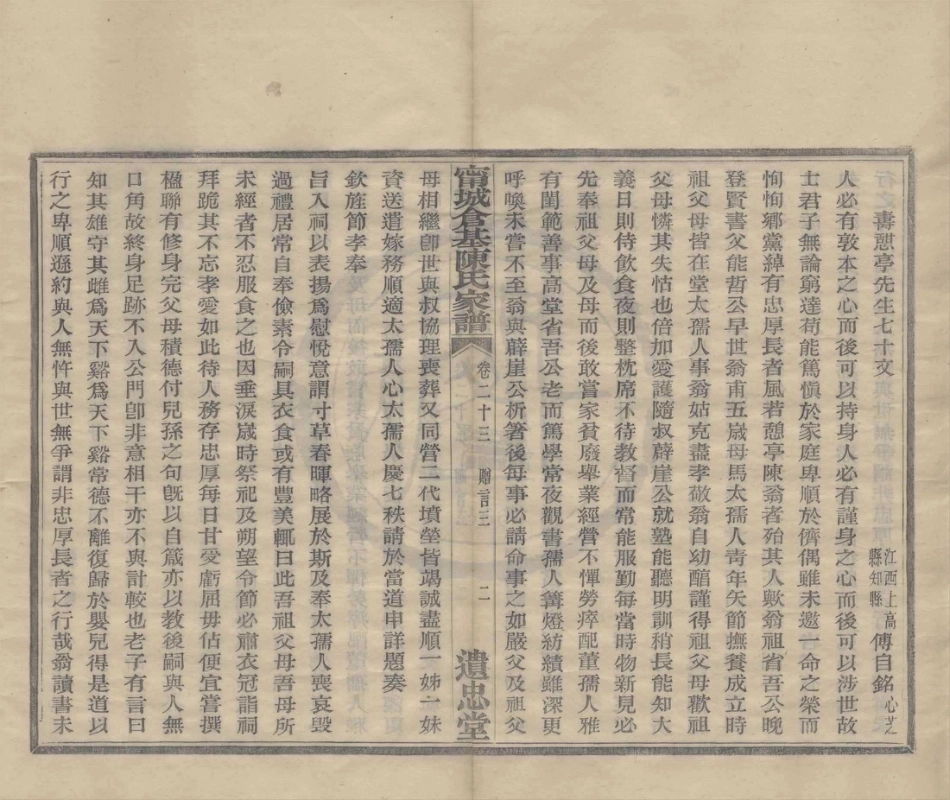 壽憇亭先生七十文
江西上高縣知縣傅自銘心芝
人必有敦本之心而後可以持身人必有謹身之心而後可以涉世故
士君子無論窮達苟能篤愼於家庭卑順於儕偶雖未邀一命之榮而
恂恂鄉黨綽有忠厚長者風若憩亭陳翁者殆其人歟翁祖省吾公晚
登賢書父能哲公早世翁甫五歲母馬太孺人青年矢節撫養成立時
祖父母皆在堂太孺人事翁姑克盡孝敬翁自幼醇謹得祖父母歡祖
父母憐其失怙也倍加愛護隨叔薜崖公就塾能聽明訓稍長能知大
義日則侍飲食夜則整枕席不待教督而常能服勤每當時物新見必
先奉祖父母及母而後敢嘗家貧廢舉業經營不憚勞瘁配董孺人雅
有閨範善事高堂省吾公老而篤學常夜觀書孺人篝燈紡績雖深更
呼喚未嘗不至翁與薜崖公析箸後每事必請命事之如嚴父及祖父
甯城倉基陳氏家譜 卷二十三 贈言三 二 遺忠堂
母相繼卽世與叔協理喪葬又同營二代墳塋皆竭誠盡順一姊二妹
資送遺嫁務順適太孺人心太孺人慶七秩請於當道申詳題奏
欽旌節孝奉
旨入祠以表揚爲慰悅意謂寸草春暉略展於斯及奉太孺人喪哀毀
過禮居常自奉儉素令嗣具衣食或有豐美輒曰此吾祖父母吾母所
未經者不忍服食之也因垂淚歲時祭祀及朔望令節必肅衣冠詣祠
拜跪其不忘孝愛如此待人務存忠厚每日甘受虧屈毋佔便宜嘗撰
楹聯有修身完父母積德付兒孫之句旣以自箴亦以教後嗣與人無
口角故終身足跡不入公門卽非意相干亦不與計較也老子有言曰
知其雄守其雌爲天下谿爲天下谿常德不離復歸於嬰兒得是道以
行之卑順遜約與人無忤與世無爭謂非忠厚長者之行哉翁讀書未